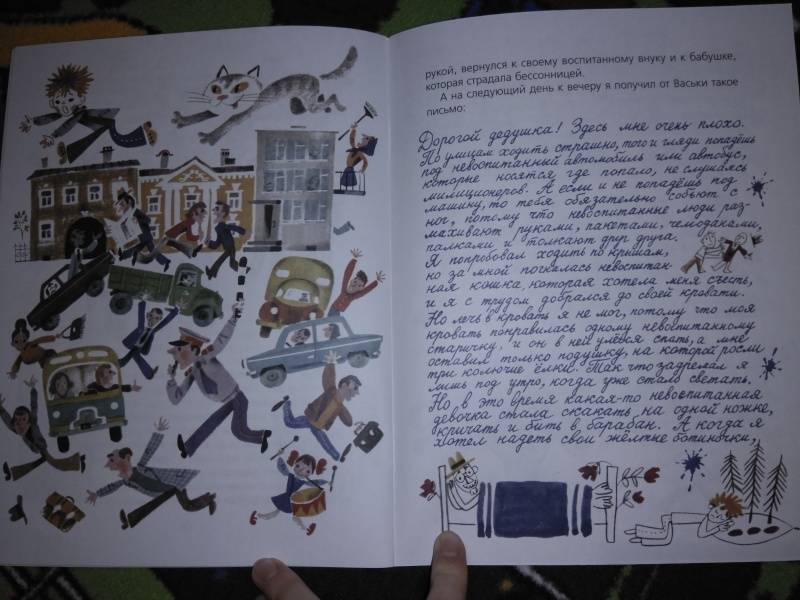 рукой, вернулся к своему воспитанному внуку и к бабушке,
которая страдала бессонницей.
А на следующий день к вечеру я получил от Васьки такое
письмо:
Дорогой дедушка! Здесь мне очень плохо.
По улицам ходить страшно, того и гляди попадёшь
под невоспитанный автомобиль или автобус,
которые носятся где попало, не слушаясь
милиционеров. А если и не попадёшь под
машину, то тебя обязательно собьют с
ног, потому что невоспитанные люди раз-
махивают руками, пакетами, чемоданами,
палками и толкают друг друга.
Я попробовал ходить по крышам,
но за мной погналась невоспитан-
ная кошка, которая хотела меня съесть,
и я с трудом добрался до своей кровати.
Но лечь в кровать я не мог, потому что моя
кровать понравилась одному невоспитанному
старичку, и он в ней улёгся спать, а мне
оставил только подушку, на которой росли
три колючие ёлки. Так что задремал я
лишь под утро, когда уже стало светать.
Но в это время какая-то невоспитанная
девочка стала скакать на одной ножке,
кричать и бить в барабан. А когда я
хотел надеть свои жёлтые ботиночки,